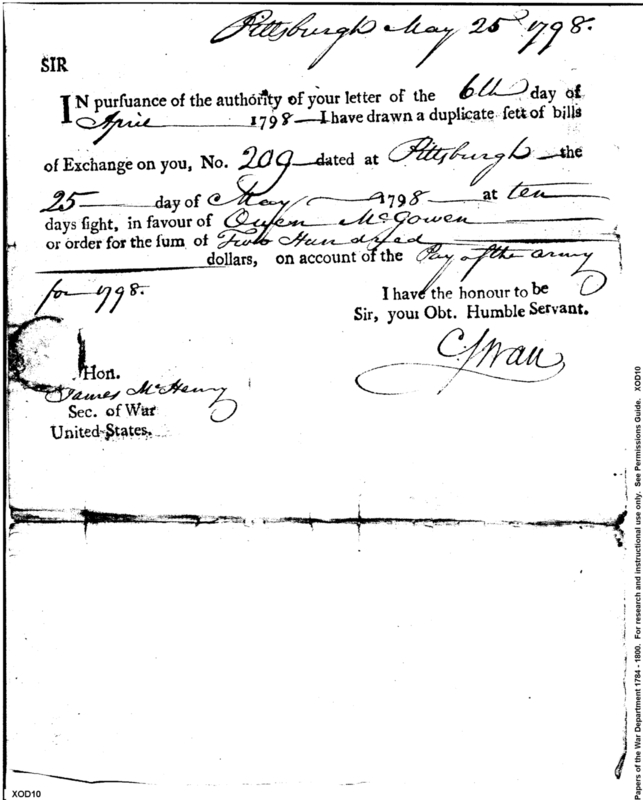 Pittsburgh May 25 1798.
SIR
IN pursuance of the authority of your letter of the 6th day of
April 1798—I have drawn a duplicate sett of bills
of Exchange on you, No. 209 dated at Pittsburgh the
25 day of May 1798 at ten
days sight, in favour of Owen McGowen
or order for the sum of Two Hundred
dollars, on account of the Pay of the army
for 1798.
I have the honour to be
Sir, your Obt. Humble Servant.
C Swan
Hon.
James McHenry
Sec. of War
United States.
XOD10
Papers of the War Department 1784 - 1800. For research and instructional use only. See Permissions Guide. XOD10